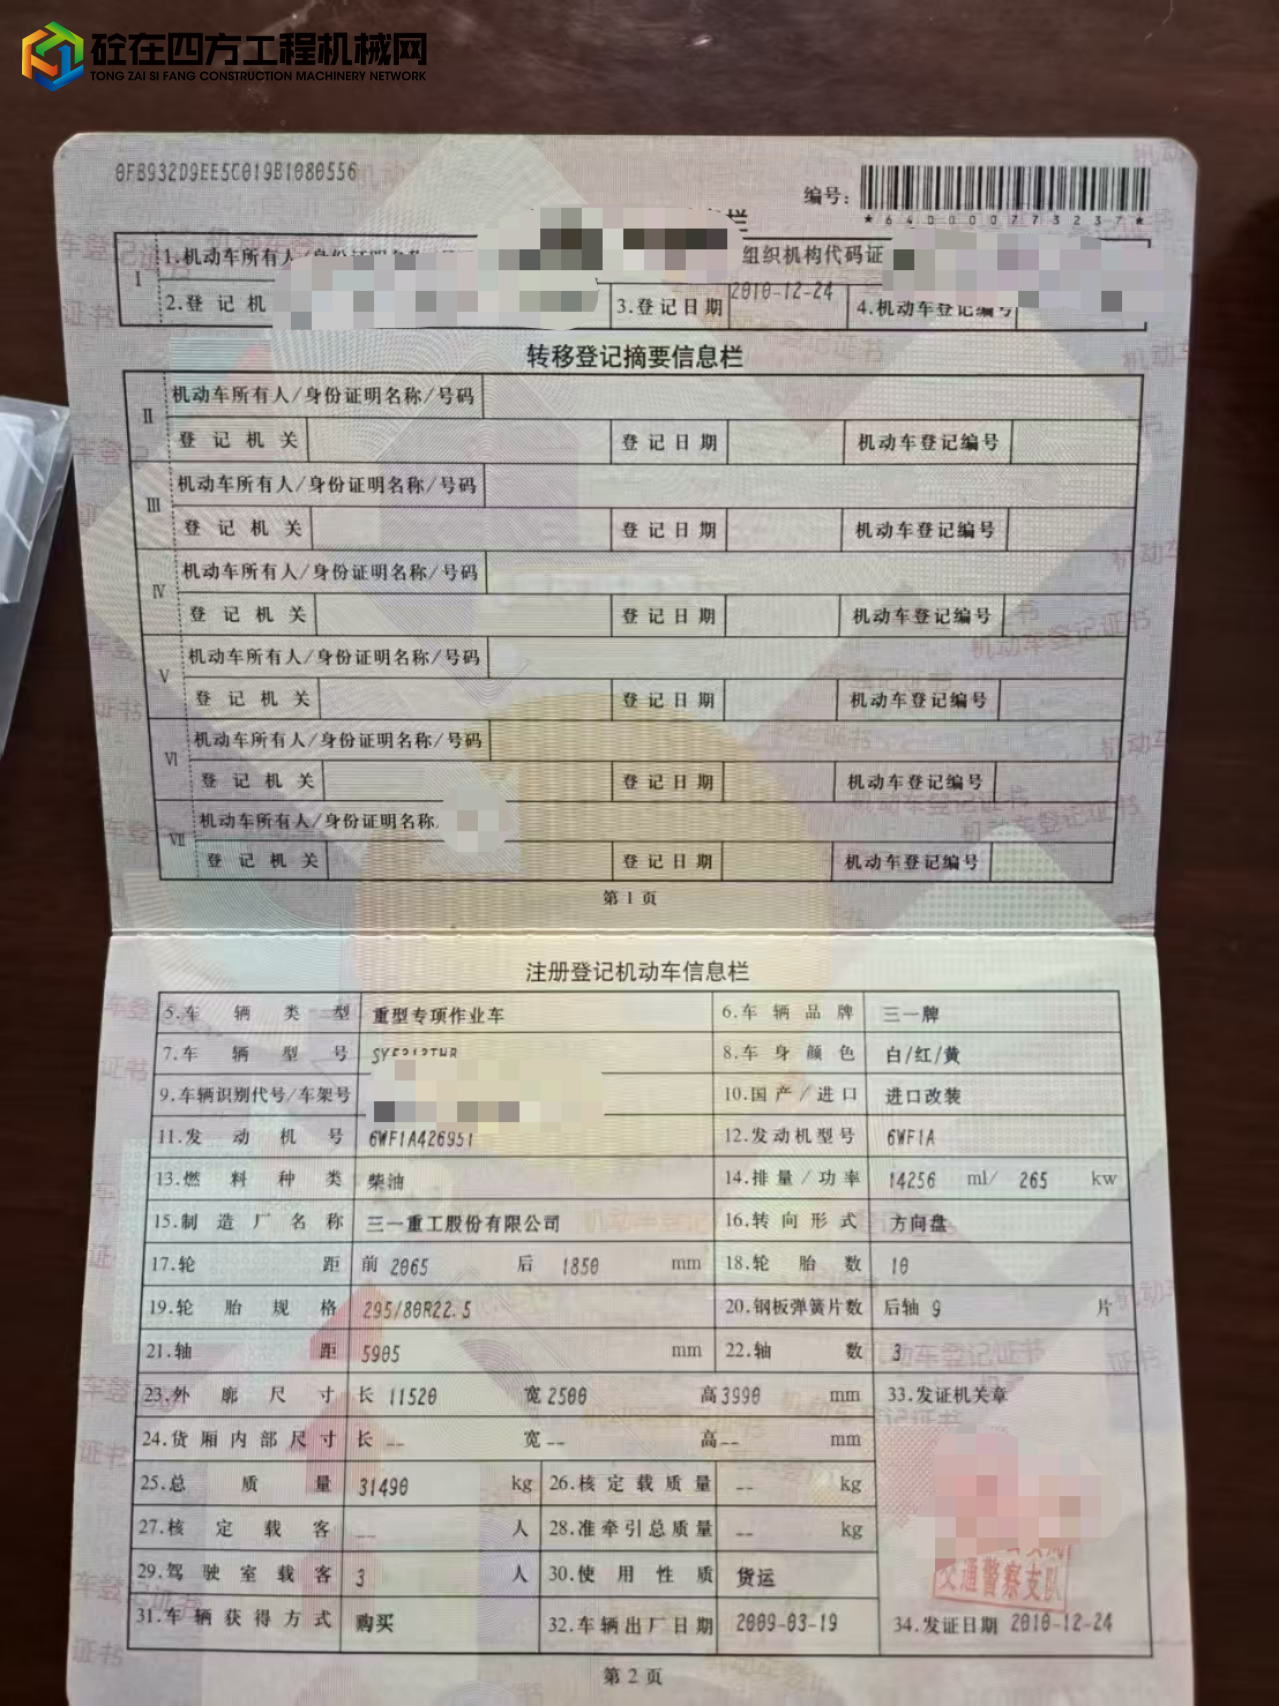 砼在四方工程机械网
TONG ZAI SI FANG CONSTRUCTION MACHINERY NETWORK
0FB932D9EE5C019B1080556
编号:
*640000773237*
息栏
I 1.机动车所有人/身份证明名称/号 组织机构代码证
2.登记机 3.登记日期 2010-12-24 4.机动车登记编号
转移登记摘要信息栏
II 机动车所有人/身份证明名称/号码
登记机关 登记日期 机动车登记编号
III 机动车所有人/身份证明名称/号码
登记机关 登记日期 机动车登记编号
IV 机动车所有人/身份证明名称/号码
登记机关 登记日期 机动车登记编号
V 机动车所有人/身份证明名称/号码
登记机关 登记日期 机动车登记编号
VI 机动车所有人/身份证明名称/号码
登记机关 登记日期 机动车登记编号
VII 机动车所有人/身份证明名称
登记机关 登记日期 机动车登记编号
第 1 页
注册登记机动车信息栏
5.车辆类型 重型专项作业车 6.车辆品牌 三一牌
7.车辆型号 8.车身颜色 白/红/黄
9.车辆识别代号/车架号 10.国产/进口 进口改装
11.发动机号 6WF1A426951 12.发动机型号 6WF1A
13.燃料种类 柴油 14.排量/功率 14256 ml/ 265 kw
15.制造厂名称 三一重工股份有限公司 16.转向形式 方向盘
17.轮距 前 2065 后 1850 mm 18.轮胎数 10
19.轮胎规格 295/80R22.5 20.钢板弹簧片数 后轴 9 片
21.轴距 5905 mm 22.轴数 3
23.外廓尺寸 长 11520 宽 2500 高 3990 mm 33.发证机关章
24.货厢内部尺寸 长 -- 宽 -- 高 -- mm
25.总质量 31490 kg 26.核定载质量 -- kg
27.核定载客 -- 人 28.准牵引总质量 -- kg
29.驾驶室载客 3 人 30.使用性质 货运
交通警察支队
31.车辆获得方式 购买 32.车辆出厂日期 2009-03-19 34.发证日期 2010-12-24
第 2 页